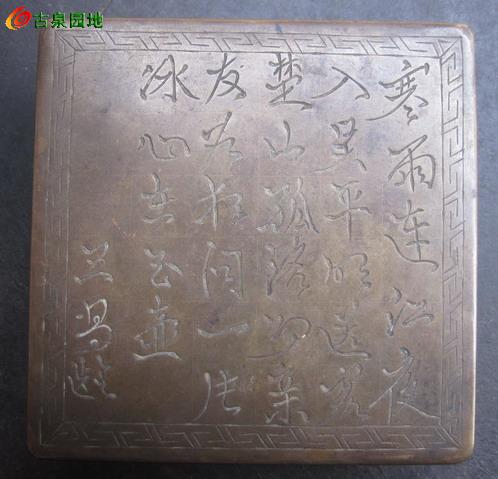 古泉园地
寒雨连江夜
入吴平明送客
楚山孤洛阳亲
友若相问一片
冰心在玉壶
王昌龄